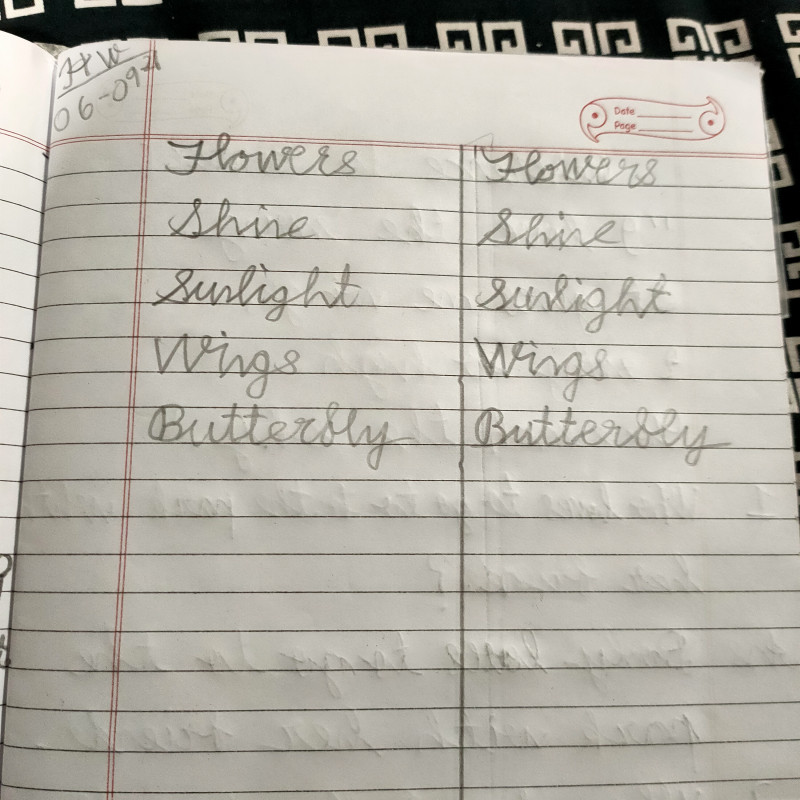 H W
06-09-21
Date
Page
Flowers Flowers
Shine Shine
Sunlight Sunlight
Wings Wings
Butterfly Butterfly